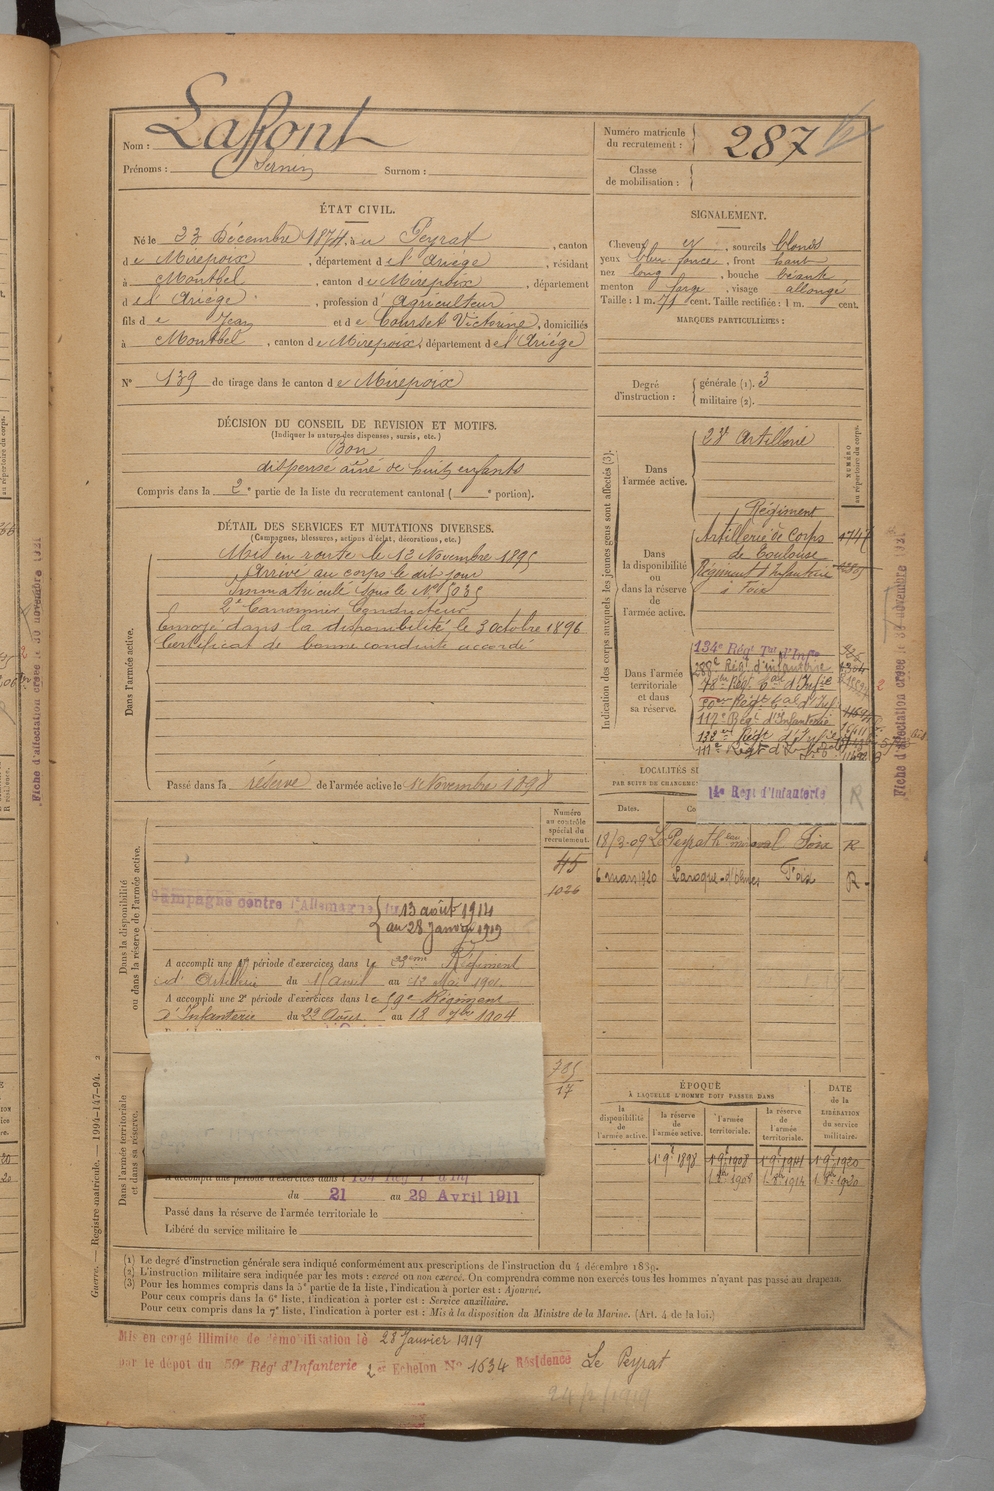 Nom : Lafont
Prénoms : Sernin Surnom :
Numéro matricule du recrutement : 287
Classe de mobilisation :
ÉTAT CIVIL.
Né le 23 Décembre 1874, à Peyrat, canton
de Mirepoix, département de l'Ariège, résidant
à Montbel, canton de Mirepoix, département
de l'Ariège, profession d'Agriculteur
fils de Jean et de Courset Victorine, domiciliés
à Montbel, canton de Mirepoix, département de l'Ariège
N° 139 de tirage dans le canton de Mirepoix
SIGNALEMENT.
Cheveux et, sourcils blonds
yeux bleu foncé, front haut
nez long, bouche béante
menton large, visage allongé
Taille : 1 m. 71 cent. Taille rectifiée : 1 m. cent.
MARQUES PARTICULIÈRES :
Degré d'instruction : générale (1). 3
militaire (2).
DÉCISION DU CONSEIL DE REVISION ET MOTIFS.
(Indiquer la nature des dispenses, sursis, etc.)
Bon
dispensé aîné de huit enfants
Compris dans la 2e partie de la liste du recrutement cantonal ( e portion).
DÉTAIL DES SERVICES ET MUTATIONS DIVERSES.
(Campagnes, blessures, actions d'éclat, décorations, etc.)
Dans l'armée active.
Mis en route le 12 Novembre 1895
Arrivé au corps le dit jour
Immatriculé sous le N° 5035
2e Canonnier Conducteur
Envoyé dans la disponibilité le 3 octobre 1896
Certificat de bonne conduite accordé
Passé dans la réserve de l'armée active le 1er Novembre 1898
Indication des corps auxquels les jeunes gens sont affectés (3).
NUMÉRO au répertoire du corps.
Dans l'armée active.
23e Artillerie
Dans la disponibilité ou dans la réserve de l'armée active.
Régiment
Artillerie de Corps
de Toulouse
Régiment d'Infanterie
à Foix
Dans l'armée territoriale et dans sa réserve.
134e Régt Tal d'Infie
d'Infanterie
117e Régt d'Infanterie
LOCALITÉS
PAR SUITE DE CHANGEMEN
14e Régt d'Infanterie
R
Dates. Co
18/3-09 Le Peyrat Foix R
6 mars 1920 Laroque-d'Olmes Foix R
Numéro au contrôle spécial du recrutement.
45
1026
Dans la disponibilité ou dans la réserve de l'armée active.
Campagne contre l'Allemagne du 13 août 1914
au 28 Janvier 1919
A accompli une 1re période d'exercices dans le Régiment
d'Artillerie du 15 avril au 12 Mai 1901
A accompli une 2e période d'exercices dans le 59e Régiment
d'Infanterie du 22 Août au 18 7bre 1904
785
17
Dans l'armée territoriale et dans sa réserve.
A accompli une période d'exercices dans l 134 Régt T d'Inf
du 21 au 29 Avril 1911
Passé dans la réserve de l'armée territoriale le
Libéré du service militaire le
ÉPOQUE
À LAQUELLE L'HOMME DOIT PASSER DANS
la disponibilité de l'armée active.
la réserve de l'armée active.
l'armée territoriale.
la réserve de l'armée territoriale.
DATE de la LIBÉRATION du service militaire.
1er 9bre 1898 1er 9bre 1908 1er 9bre 1914 1er 9bre 1920
1er 8bre 1908 1er 8bre 1914 1er 8bre 1920
(1) Le degré d'instruction générale sera indiqué conformément aux prescriptions de l'instruction du 4 décembre 1889.
(2) L'instruction militaire sera indiquée par les mots : exercé ou non exercé. On comprendra comme non exercés tous les hommes n'ayant pas passé au drapeau.
(3) Pour les hommes compris dans la 5e partie de la liste, l'indication à porter est : Ajourné.
Pour ceux compris dans la 6e liste, l'indication à porter est : Service auxiliaire.
Pour ceux compris dans la 7e liste, l'indication à porter est : Mis à la disposition du Ministre de la Marine. (Art. 4 de la loi.)
Mis en congé illimité de démobilisation le 28 Janvier 1919
par le dépot du 59e Régt d'Infanterie 2e Echelon N° 1634 Résidence Le Peyrat
24/2/1919
Guerre. — Registre matricule. — 1994-147-94. 2
Fiche d'affectation créée le 30 novembre 1921
Fiche d'affectation créée le 30 novembre 1921